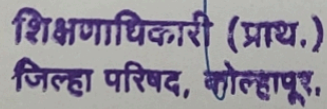 शिक्षणाधिकारी (प्राथ.)
जिल्हा परिषद, कोल्हापूर.